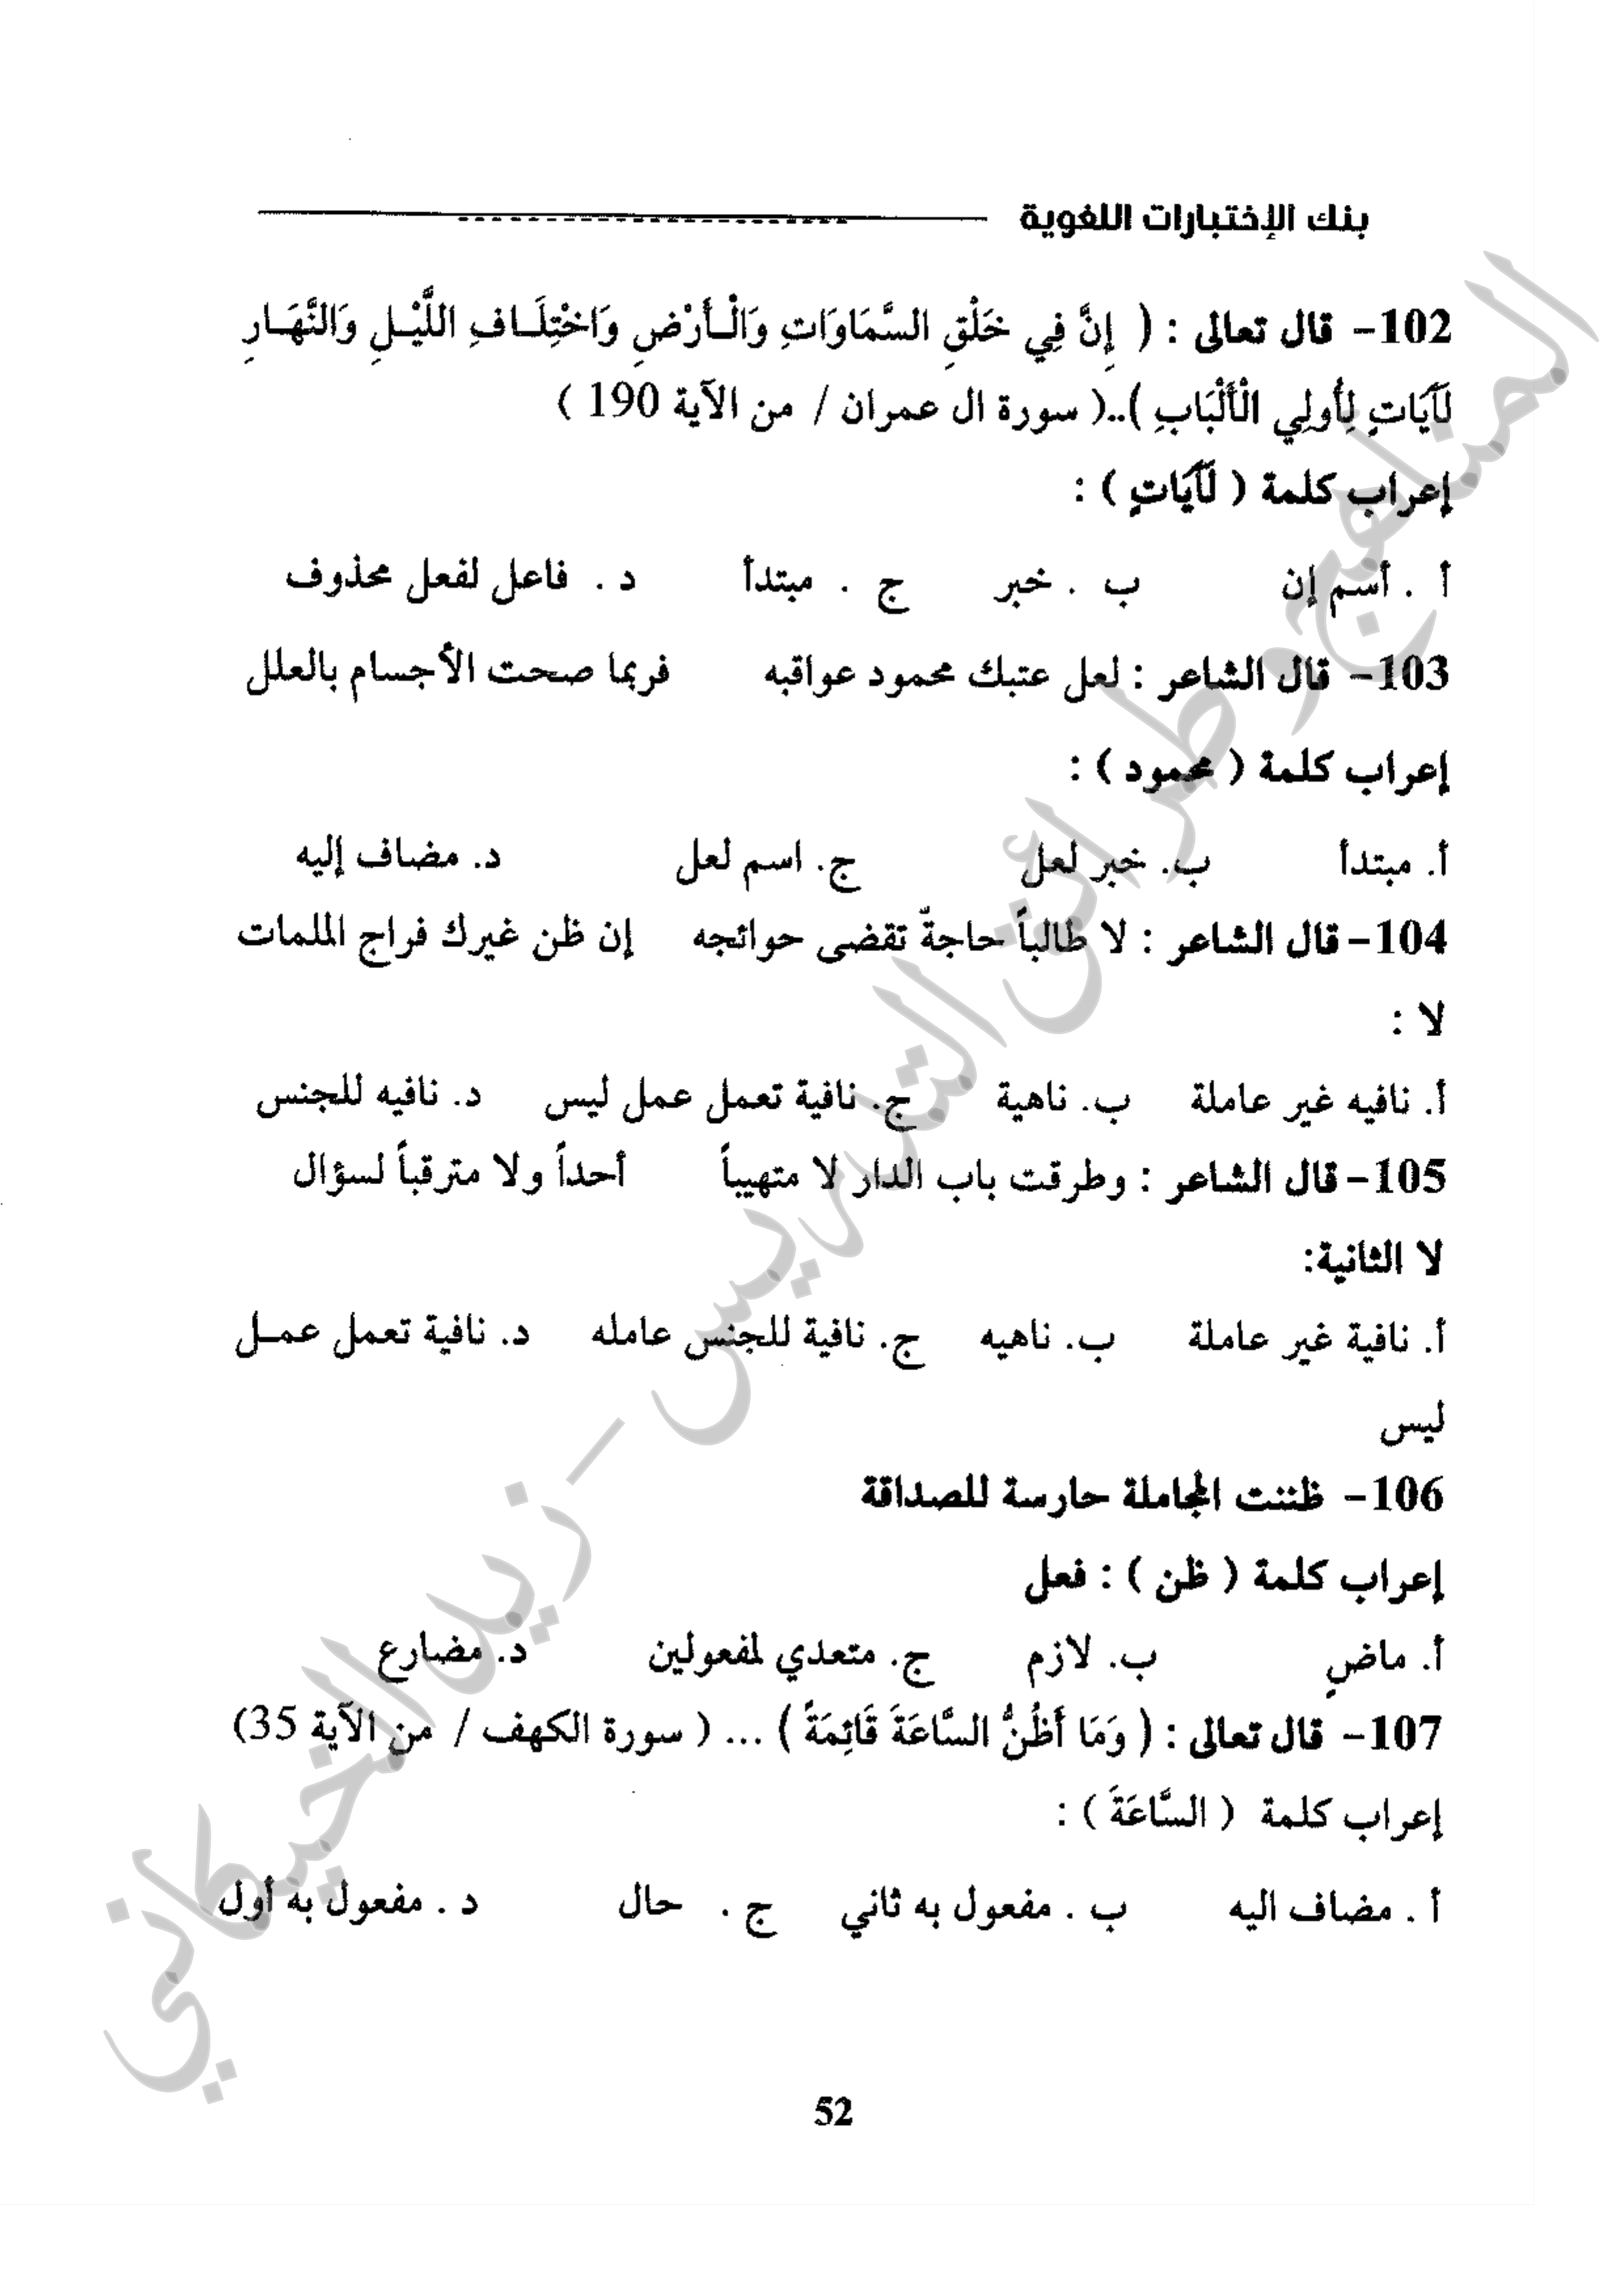 بنك الإختبارات اللغوية
102- قال تعالى : ( إِنَّ فِي خَلْقِ السَّمَاوَاتِ وَالْـأَرْضِ وَاخْتِلَـافِ اللَّيْـلِ وَالنَّهَـارِ
لَآَيَاتٍ لِأُولِي الْأَلْبَابِ )..( سورة ال عمران / من الآية 190 )
إعراب كلمة ( لَآَيَاتٍ ) :
أ . أسم إن ب . خبر ج . مبتدأ د . فاعل لفعل محذوف
103- قال الشاعر : لعل عتبك محمود عواقبه فربما صحت الأجسام بالعلل
إعراب كلمة ( محمود ) :
أ. مبتدأ ب. خبر لعل ج. اسم لعل د. مضاف إليه
104- قال الشاعر : لا طالباً حاجةٌ تقضى حوائجه إن ظن غيرك فراج الملمات
لا :
أ. نافيه غير عاملة ب. ناهية ج. نافية تعمل عمل ليس د. نافيه للجنس
105- قال الشاعر : وطرقت باب الدار لا متهيباً أحداً ولا مترقباً لسؤال
لا الثانية:
أ. نافية غير عاملة ب. ناهيه ج. نافية للجنس عامله د. نافية تعمل عمـل
ليس
106- ظننت المجاملة حارسة للصداقة
إعراب كلمة ( ظن ) : فعل
أ. ماضٍ ب. لازم ج. متعدي لمفعولين د. مضارع
107- قال تعالى : ( وَمَا أَظُنُّ السَّاعَةَ قَائِمَةً ) ... ( سورة الكهف / من الآية 35)
إعراب كلمة ( السَّاعَةَ ) :
أ . مضاف اليه ب . مفعول به ثاني ج . حال د . مفعول به أول
52
المناهج وطرائق التدريس - زيد الخيكاني